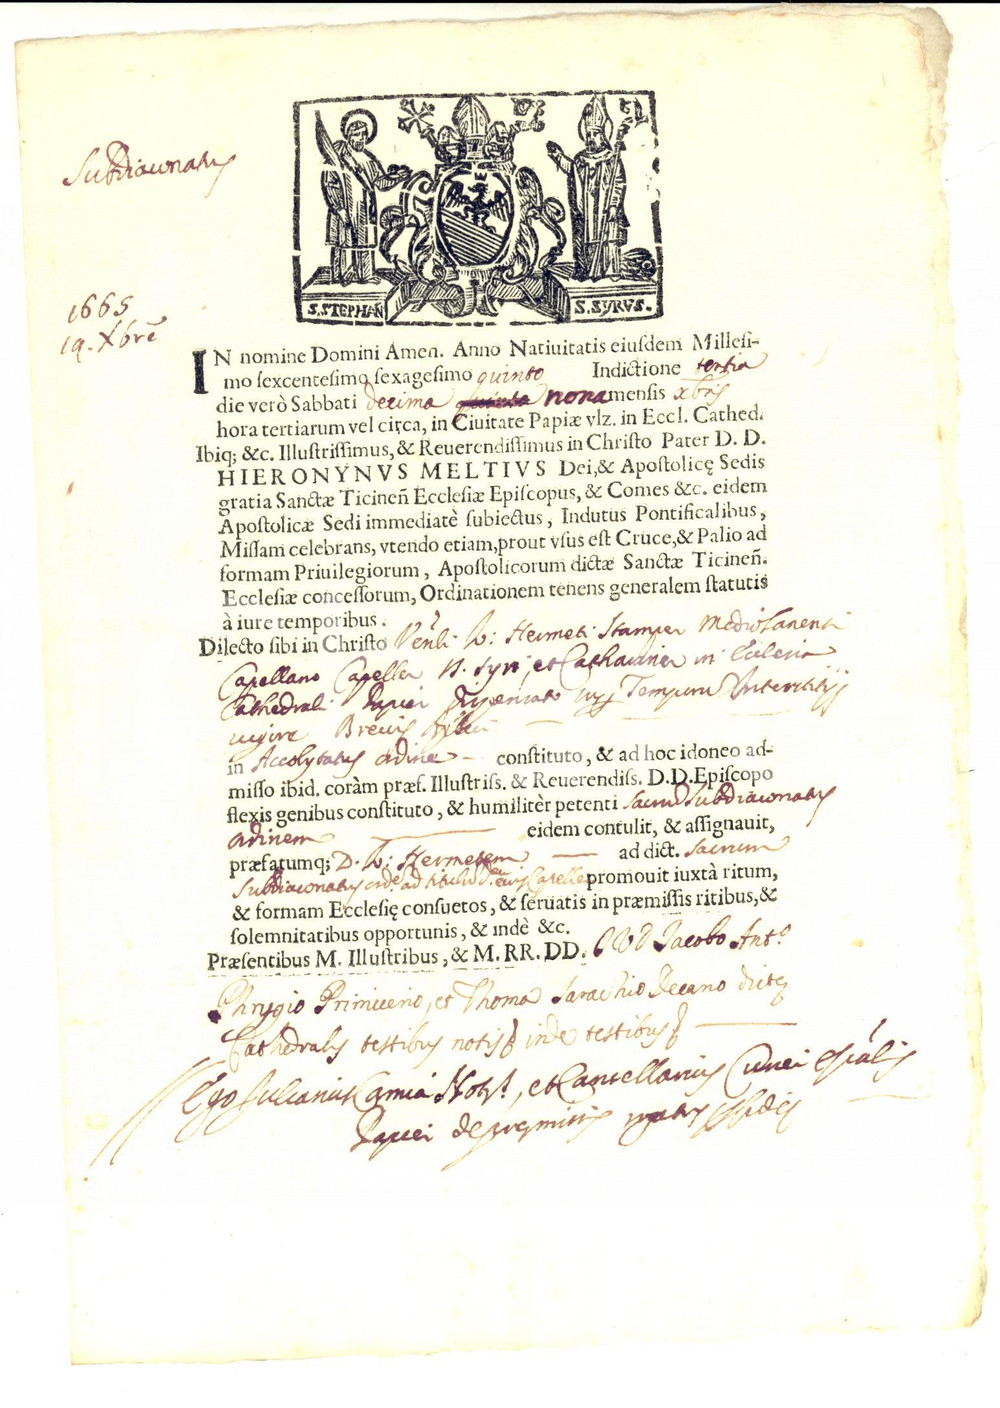 Subdiaconatus
1665
19. Xbre
S. STEPHAÑ
S. SYRVS.
IN nomine Domini Amen. Anno Natiuitatis eiusdem Millesi-
mo sexcentesimo sexagesimo quinto Indictione tertia
die verò Sabbati decima nona mensis xbris
hora tertiarum vel circa, in Ciuitate Papiæ vlz. in Eccl. Cathed.
Ibiq; &c. Illustrissimus, & Reuerendissimus in Christo Pater D. D.
HIERONYNVS MELTIVS Dei, & Apostolicę Sedis
gratia Sanctæ Ticineñ Ecclesiæ Episcopus, & Comes &c. eidem
Apostolicæ Sedi immediatè subiectus, Indutus Pontificalibus,
Missam celebrans, vtendo etiam, prout vsus est Cruce, & Palio ad
formam Priuilegiorum, Apostolicorum dictæ Sanctæ Ticineñ.
Ecclesiæ concessorum, Ordinationem tenens generalem statutis
à iure temporibus.
Dilecto sibi in Christo Hermeti Stamper Mediolanensi
Capellano Capellæ S. Syri, et Catharinæ in Ecclesia
Cathedrali Papiei Tempora Interstitijs
vigore Brevis
in Accolytatus ordine constituto, & ad hoc idoneo ad-
misso ibid. coràm præf. Illustriss. & Reuerendiss. D. D. Episcopo
flexis genibus constituto, & humilitèr petenti sacrum Subdiaconatus
ordinem eidem contulit, & assignauit,
præfatumq; D. Hermetem ad dict. sacrum
Subdiaconatus ord. ad titulum Capellæ promouit iuxtà ritum,
& formam Ecclesię consuetos, & seruatis in præmissis ritibus, &
solemnitatibus opportunis, & indè &c.
Præsentibus M. Illustribus, & M. RR. DD. Jacobo Ant.º
Phrygio Primicerio, et Thoma Sarachio Decano dictę
Cathedralis testibus notis inde testibus
Ego Julianus Not.s, et Cancellarius Curiei
Papiei de pręmissis